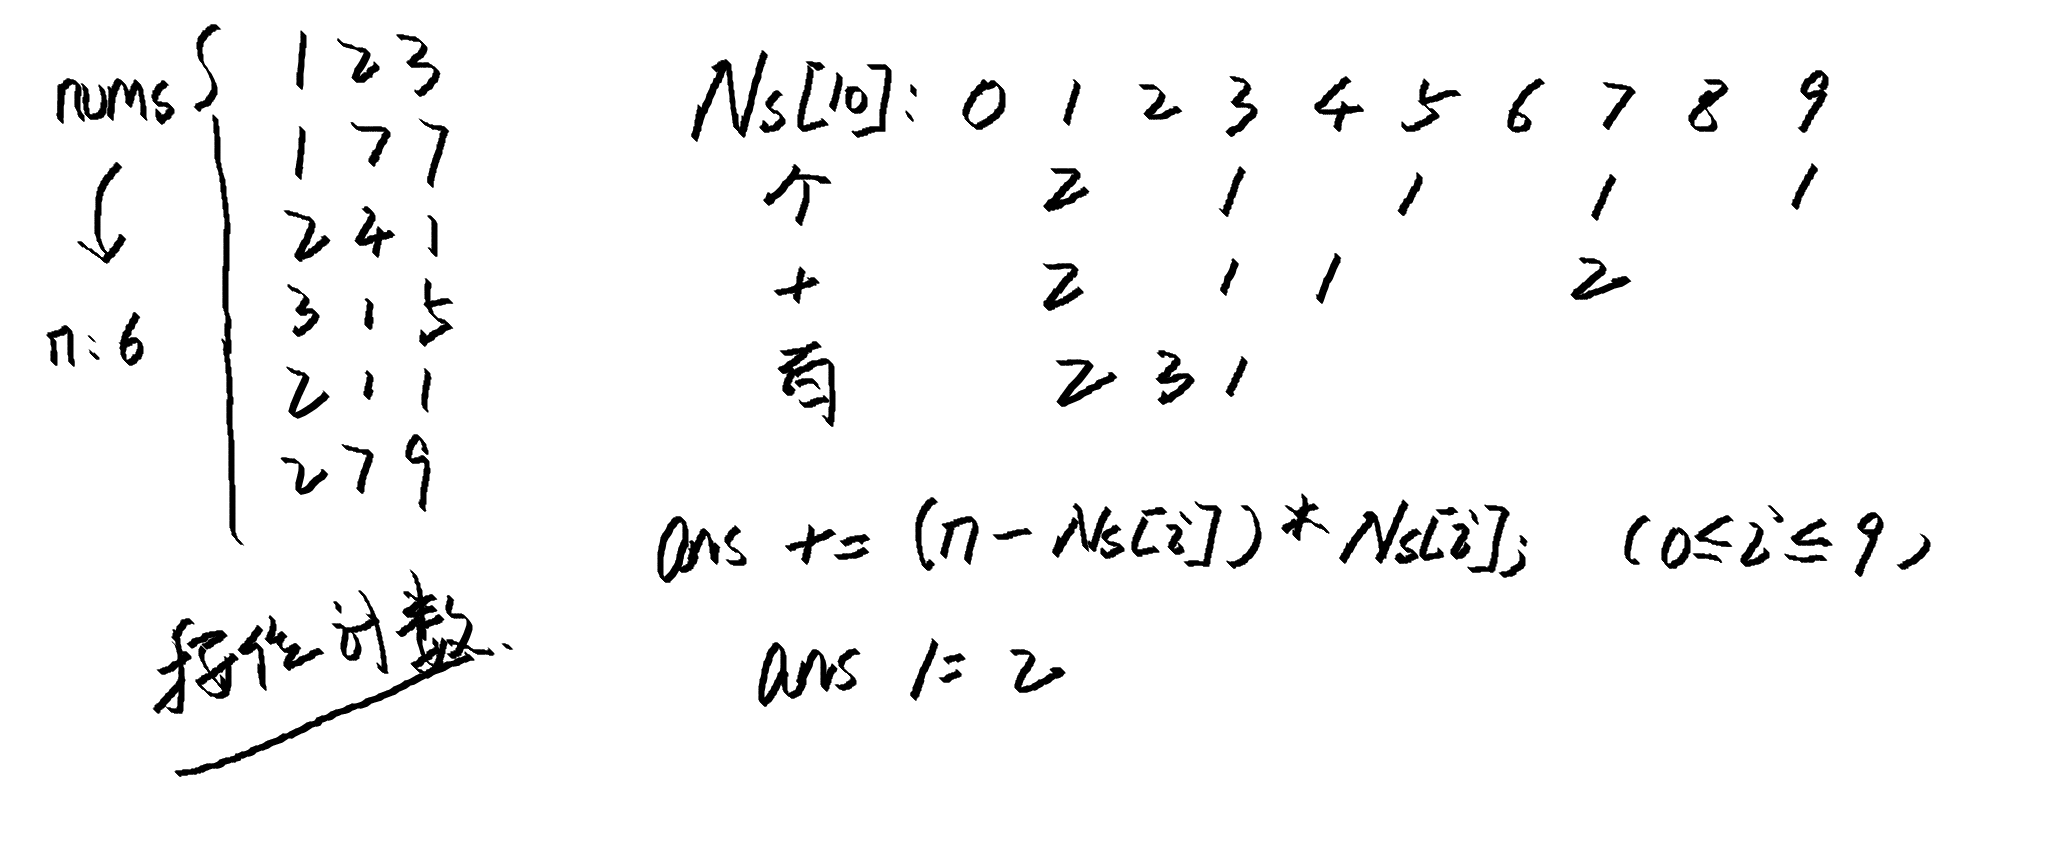 nums { 1 2 3
1 7 7
2 4 1
3 1 5
2 1 1
2 7 9
n: 6
按位计数.
Ns[10]: 0 1 2 3 4 5 6 7 8 9
个 2 1 1 1 1
十 2 1 1 2
百 2 3 1
ans += (n - Ns[i]) * Ns[i]; (0≤i≤9)
ans /= 2